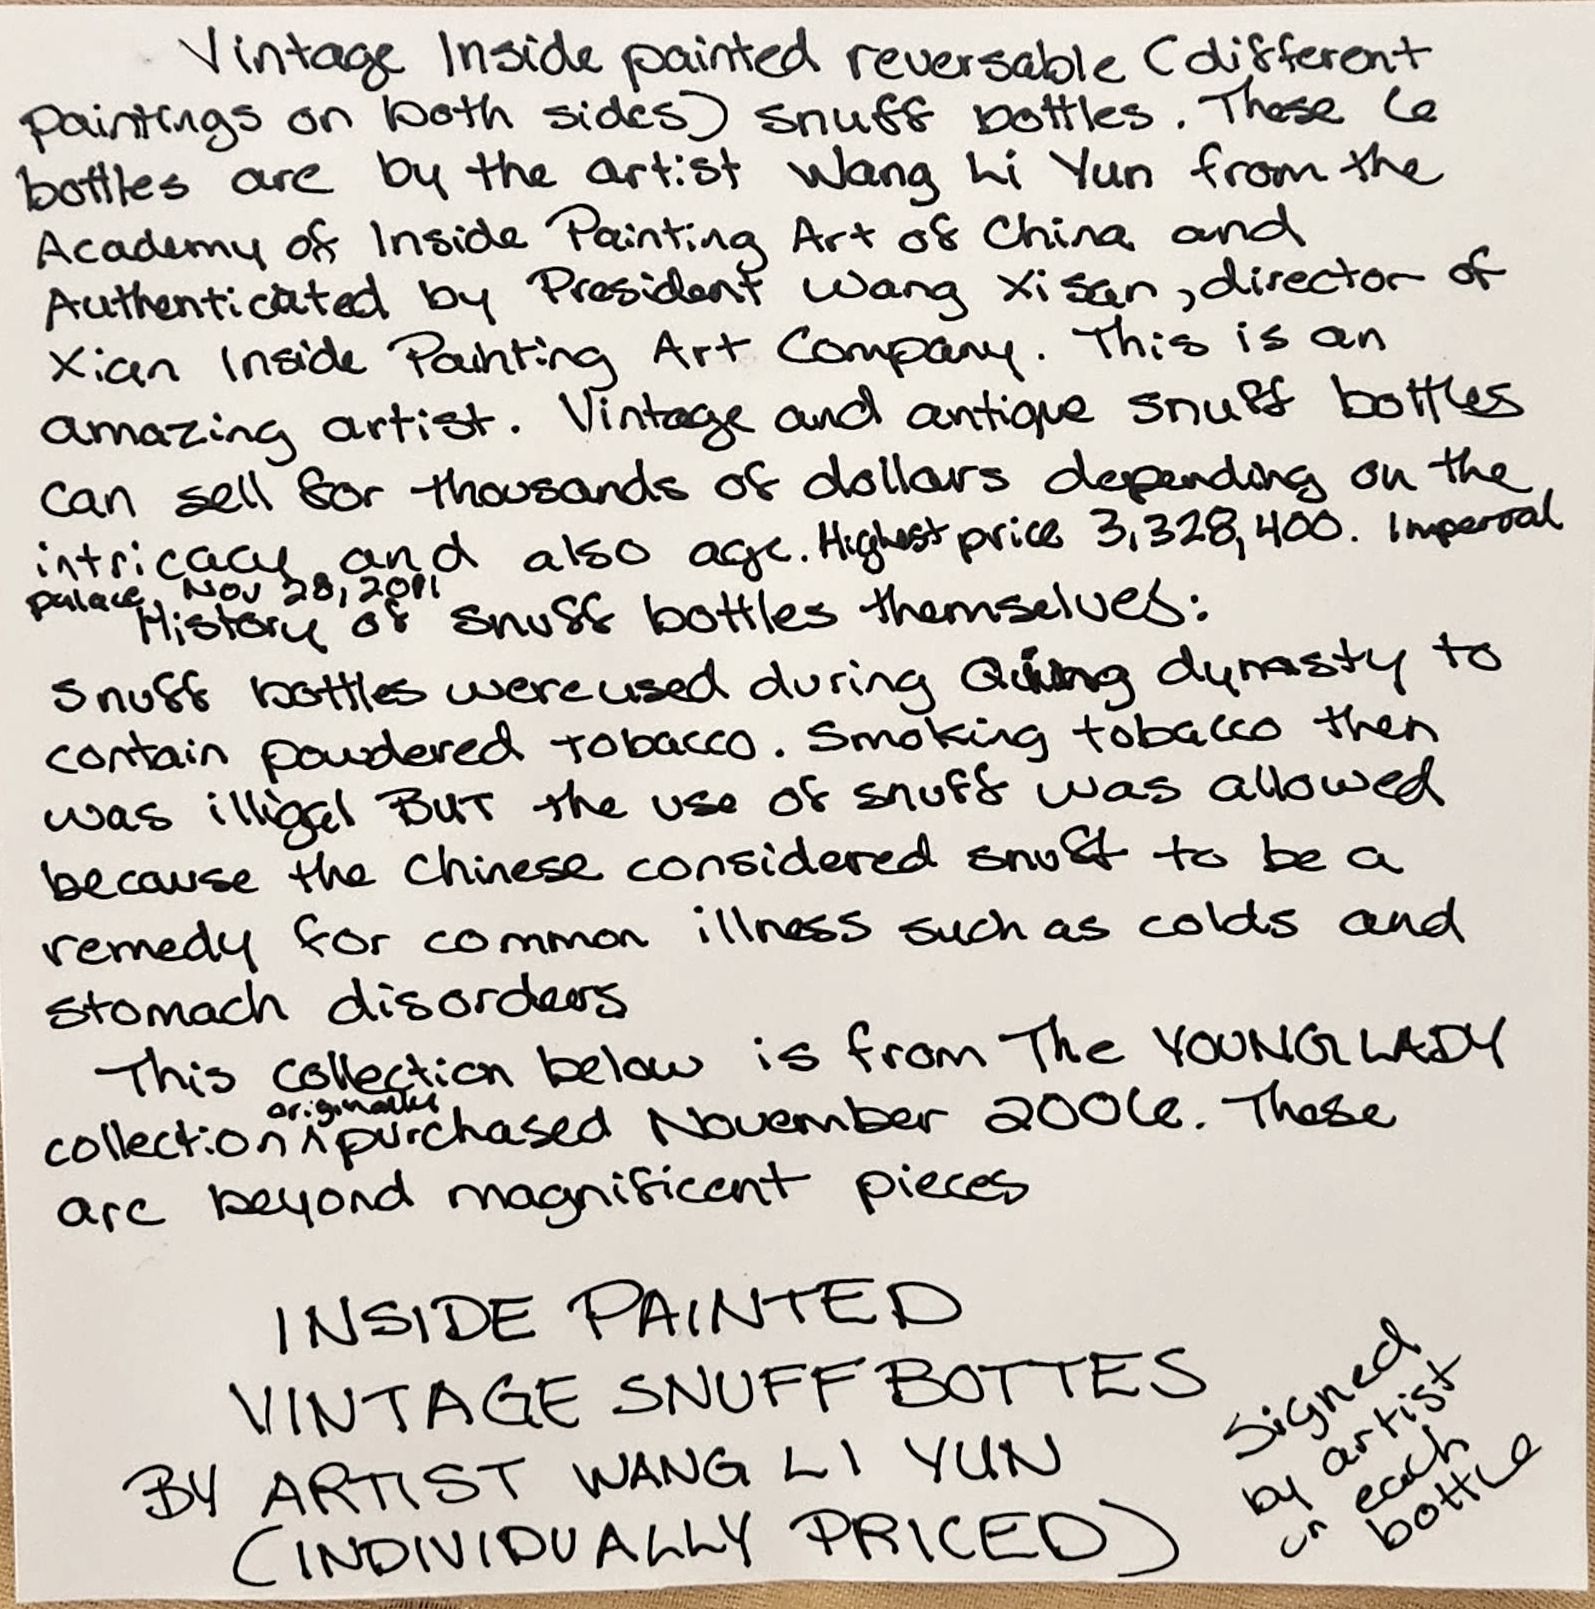 Vintage Inside painted reversable (different
paintings on both sides) snuff bottles. These 6
bottles are by the artist Wang Li Yun from the
Academy of Inside Painting Art of China and
Authenticated by President Wang Xisan, director of
Xian Inside Painting Art Company. This is an
amazing artist. Vintage and antique snuff bottles
can sell for thousands of dollars depending on the
intricacy and also age. Highest price 3,328,400. Imperoal
palace Nov 28, 2011
History of snuff bottles themselves:
Snuff bottles were used during Qing dynasty to
contain powdered tobacco. Smoking tobacco then
was illigal BUT the use of snuff was allowed
because the Chinese considered snuff to be a
remedy for common illness such as colds and
stomach disorders
This collection below is from The YOUNG LADY
collection ^ originally purchased November 2006. These
are beyond magnificent pieces
INSIDE PAINTED
VINTAGE SNUFF BOTTES
BY ARTIST WANG LI YUN
(INDIVIDUALLY PRICED)
Signed
by artist
on each
bottle